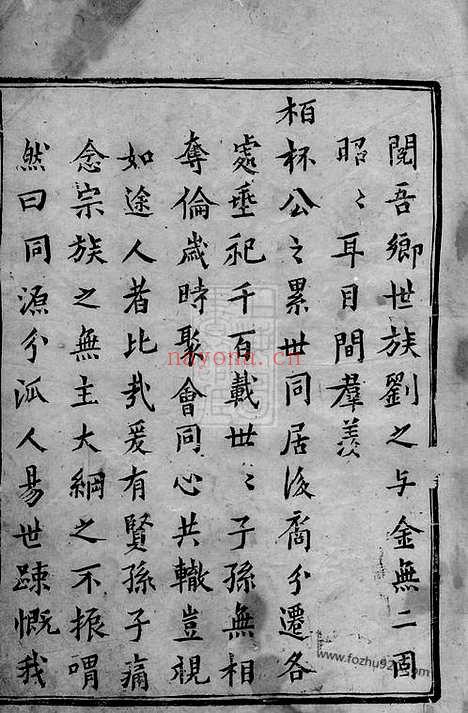 閱吾鄉世族劉之与金無二固
昭〻耳目間羣羨
栢林公之累世同居後裔分遷各
處垂祀千百載世〻子孫無相
奪倫歲時聚會同心共轍豈視
如途人者比哉爰有賢孫子痛
念宗族之無主大綱之不振喟
然曰同源分派人易世踈慨我
nayona.cn
www.fozhu920.com